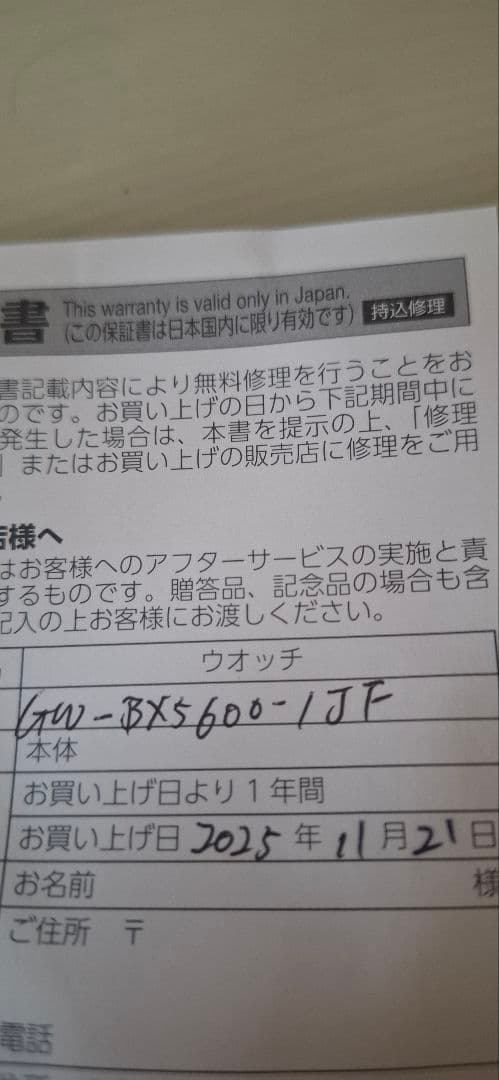 書 This warranty is valid only in Japan.
(この保証書は日本国内に限り有効です) 持込修理
書記載内容により無料修理を行うことをお
のです。お買い上げの日から下記期間中に
発生した場合は、本書を提示の上、「修理
」またはお買い上げの販売店に修理をご用
店様へ
はお客様へのアフターサービスの実施と責
するものです。贈答品、記念品の場合も含
記入の上お客様にお渡しください。
ウオッチ
GW-BX5600-1JF
本体
お買い上げ日より1年間
お買い上げ日 2025年11月21日
お名前 様
ご住所 〒
電話